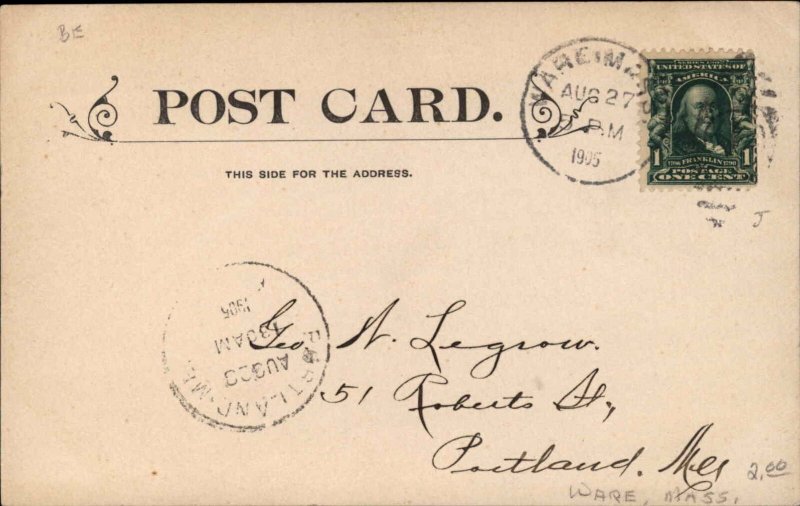 BE
POST CARD.
THIS SIDE FOR THE ADDRESS.
WARE MASS
AUG 27
PM
1905
SERIES 1902
UNITED STATES OF
AMERICA
1 1
1706 FRANKLIN 1790
POSTAGE
ONE CENT
J
PORTLAND, ME.
AUG 28
1 30 AM
1905
Geo. W. Legrow.
51 Roberts St.,
Portland. Me
2.00
WARE, MASS.